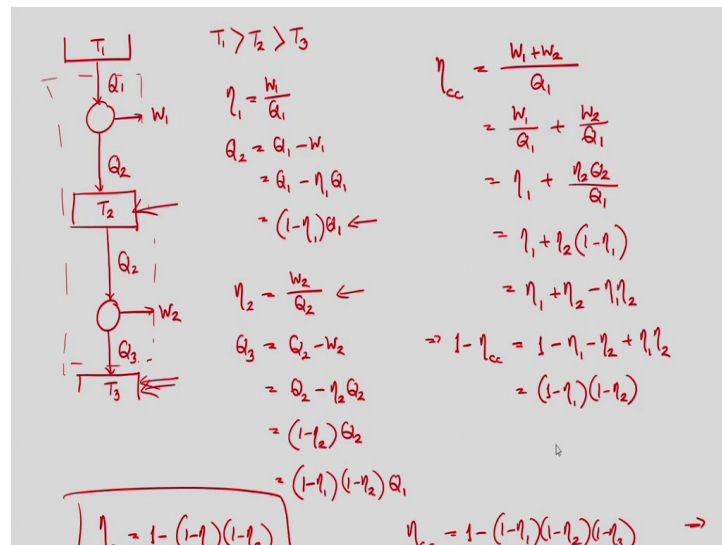 T₁
Q₁
W₁
Q₂
T₂
Q₂
W₂
Q₃
T₃
T₁ > T₂ > T₃
η₁ = W₁/Q₁
Q₂ = Q₁ - W₁
= Q₁ - η₁Q₁
= (1-η₁)Q₁ ←
η₂ = W₂/Q₂ ←
Q₃ = Q₂ - W₂
= Q₂ - η₂Q₂
= (1-η₂)Q₂
= (1-η₁)(1-η₂)Q₁
η_cc = (W₁+W₂)/Q₁
= W₁/Q₁ + W₂/Q₁
= η₁ + η₂Q₂/Q₁
= η₁ + η₂(1-η₁)
= η₁ + η₂ - η₁η₂
⇒ 1-η_cc = 1-η₁-η₂+η₁η₂
= (1-η₁)(1-η₂)
= 1-(1-η₁)(1-η₂)
η_cc = 1-(1-η₁)(1-η₂)(1-η₃) ⇒